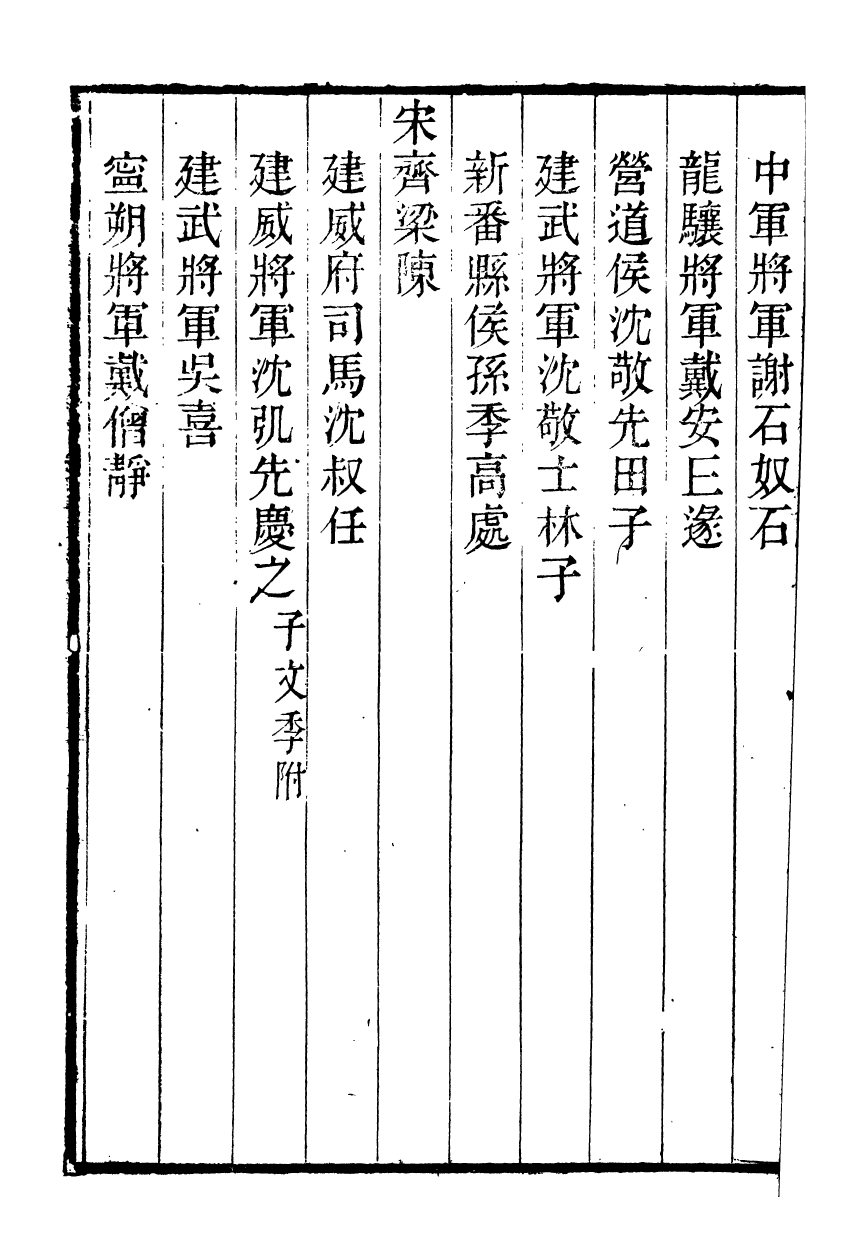 中軍將軍謝石奴石
龍驤將軍戴安𠀐遂
營道侯沈敬光田子
建武將軍沈敬士林子
新番縣侯孫季高處
宋齊梁陳
建威府司馬沈叔任
建威將軍沈弘先慶之子文季附
建武將軍吳喜
寍朔將軍戴僧靜